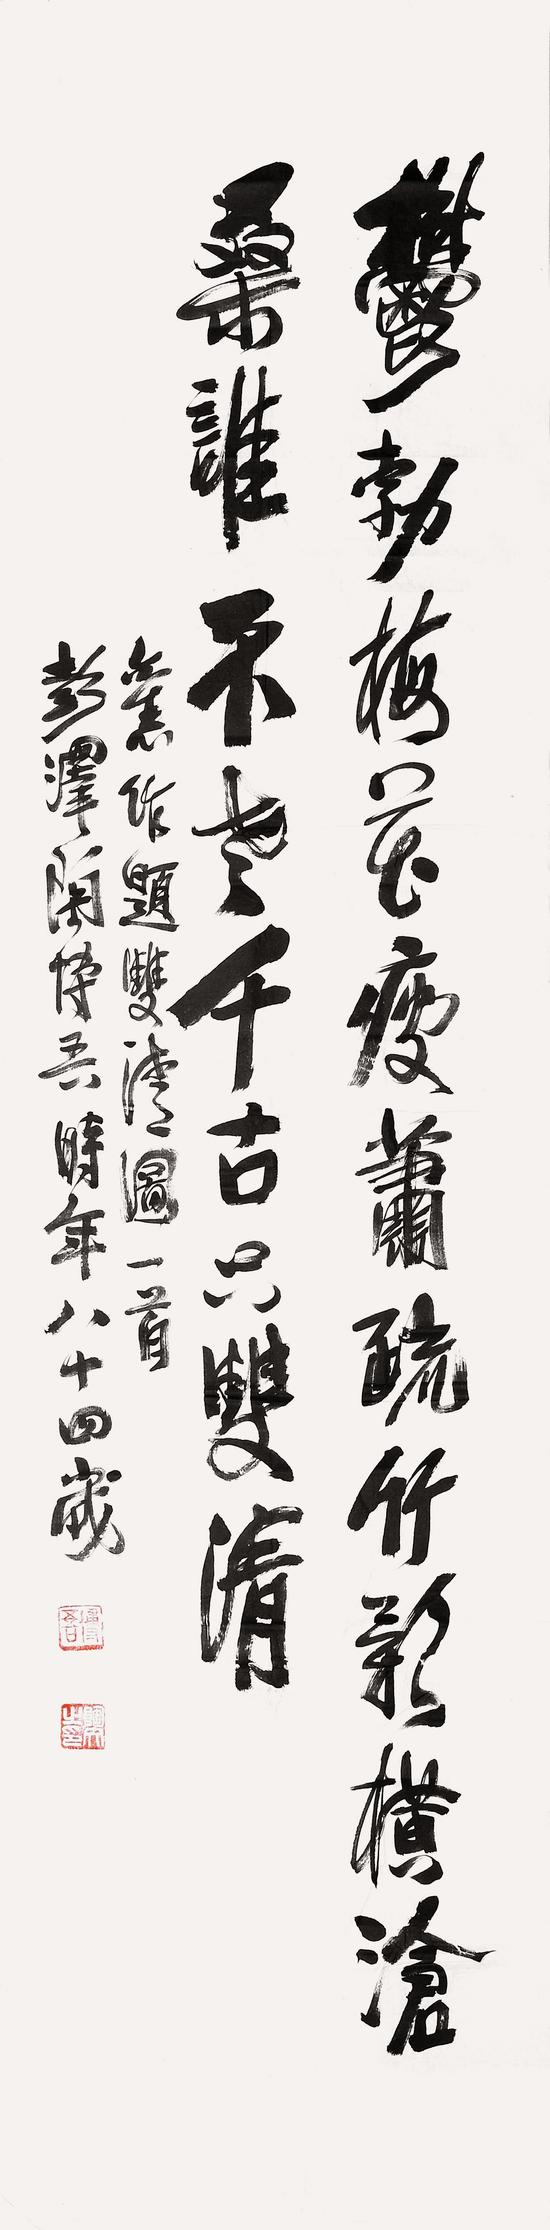 鬱勃梅花瘦蕭疏竹影橫滄
桑誰不老千古只雙清
舊作題雙清圖一首
彭澤陶博吾時年八十四歲
博吾